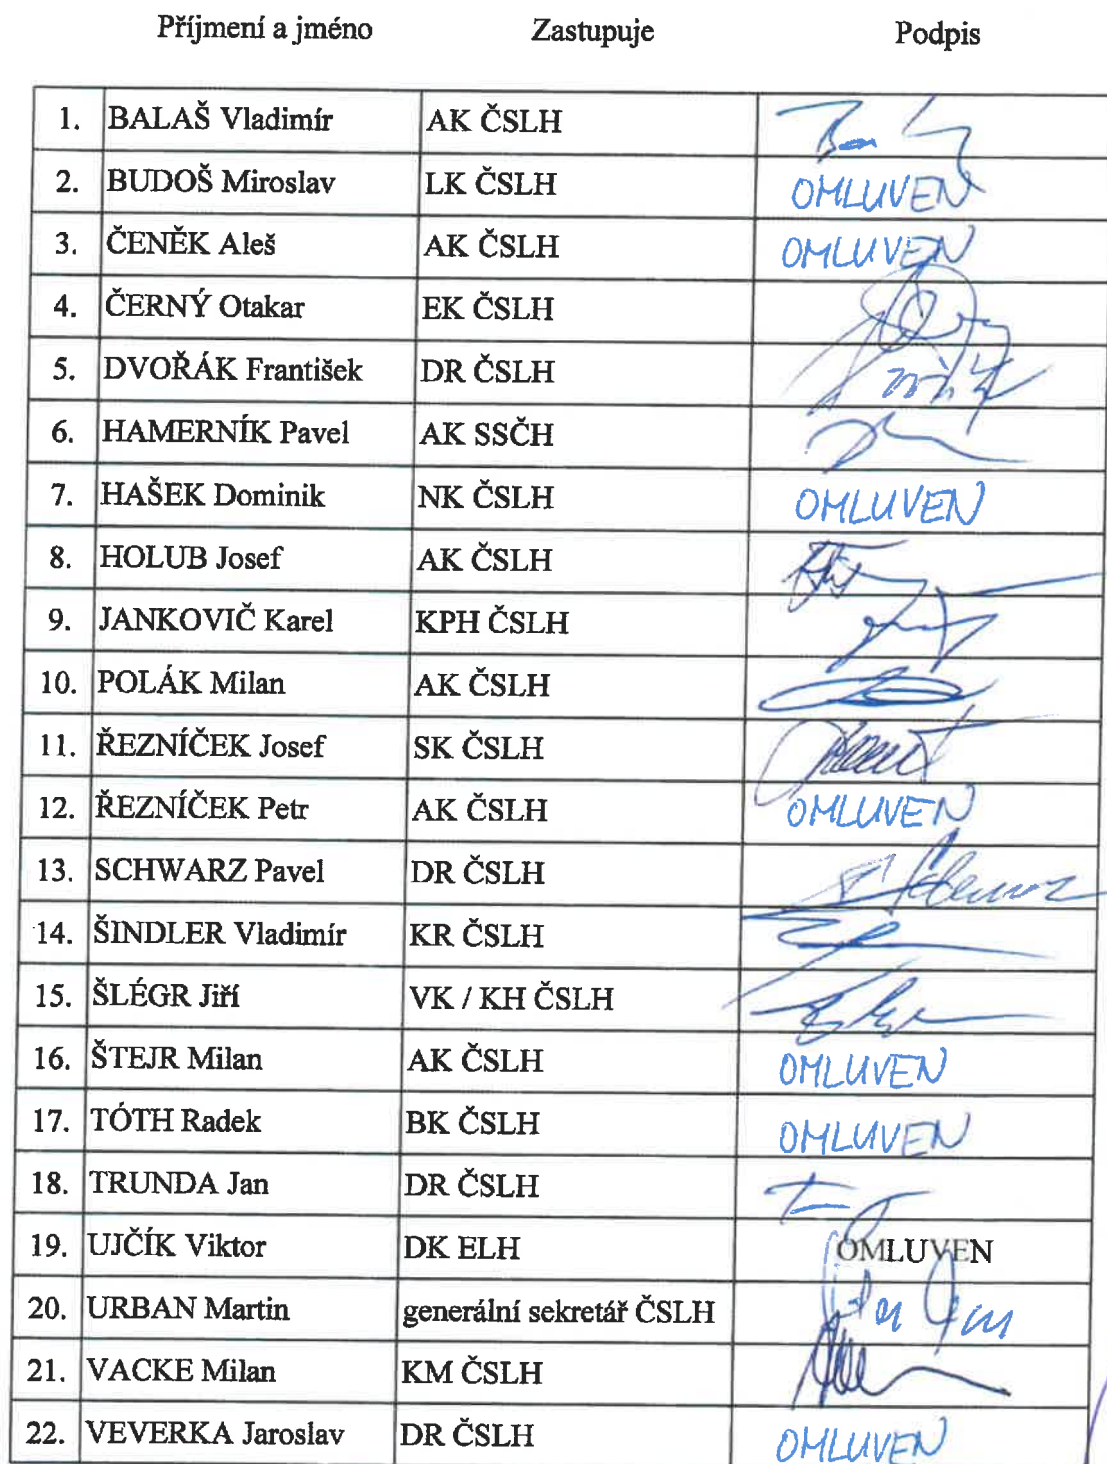 Příjmení a jméno Zastupuje Podpis
1. BALAŠ Vladimír AK ČSLH
2. BUDOŠ Miroslav LK ČSLH OMLUVEN
3. ČENĚK Aleš AK ČSLH OMLUVEN
4. ČERNÝ Otakar EK ČSLH
5. DVOŘÁK František DR ČSLH
6. HAMERNÍK Pavel AK SSČH
7. HAŠEK Dominik NK ČSLH OMLUVEN
8. HOLUB Josef AK ČSLH
9. JANKOVIČ Karel KPH ČSLH
10. POLÁK Milan AK ČSLH
11. ŘEZNÍČEK Josef SK ČSLH
12. ŘEZNÍČEK Petr AK ČSLH OMLUVEN
13. SCHWARZ Pavel DR ČSLH
14. ŠINDLER Vladimír KR ČSLH
15. ŠLÉGR Jiří VK / KH ČSLH
16. ŠTEJR Milan AK ČSLH OMLUVEN
17. TÓTH Radek BK ČSLH OMLUVEN
18. TRUNDA Jan DR ČSLH
19. UJČÍK Viktor DK ELH OMLUVEN
20. URBAN Martin generální sekretář ČSLH
21. VACKE Milan KM ČSLH
22. VEVERKA Jaroslav DR ČSLH OMLUVEN